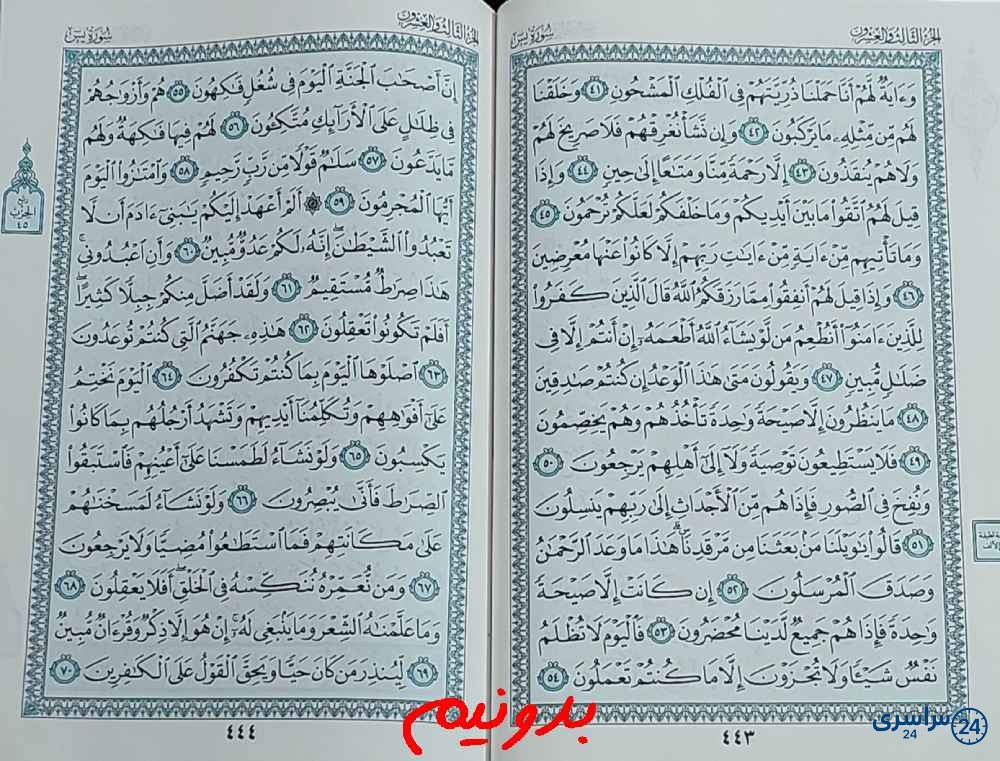 الجزء الثالث والعشرون
سورة يس
وَءَايَةٌ لَّهُمْ أَنَّا حَمَلْنَا ذُرِّيَّتَهُمْ فِي الْفُلْكِ الْمَشْحُونِ ٤١ وَخَلَقْنَا
لَهُم مِّن مِّثْلِهِۦ مَا يَرْكَبُونَ ٤٢ وَإِن نَّشَأْ نُغْرِقْهُمْ فَلَا صَرِيخَ لَهُمْ
وَلَا هُمْ يُنقَذُونَ ٤٣ إِلَّا رَحْمَةً مِّنَّا وَمَتَٰعًا إِلَىٰ حِينٍ ٤٤ وَإِذَا
قِيلَ لَهُمُ اتَّقُوا۟ مَا بَيْنَ أَيْدِيكُمْ وَمَا خَلْفَكُمْ لَعَلَّكُمْ تُرْحَمُونَ ٤٥
وَمَا تَأْتِيهِم مِّنْ ءَايَةٍ مِّنْ ءَايَٰتِ رَبِّهِمْ إِلَّا كَانُوا۟ عَنْهَا مُعْرِضِينَ
٤٦ وَإِذَا قِيلَ لَهُمْ أَنفِقُوا۟ مِمَّا رَزَقَكُمُ اللَّهُ قَالَ الَّذِينَ كَفَرُوا۟
لِلَّذِينَ ءَامَنُوٓا۟ أَنُطْعِمُ مَن لَّوْ يَشَآءُ اللَّهُ أَطْعَمَهُۥٓ إِنْ أَنتُمْ إِلَّا فِي
ضَلَٰلٍ مُّبِينٍ ٤٧ وَيَقُولُونَ مَتَىٰ هَٰذَا الْوَعْدُ إِن كُنتُمْ صَٰدِقِينَ
٤٨ مَا يَنظُرُونَ إِلَّا صَيْحَةً وَٰحِدَةً تَأْخُذُهُمْ وَهُمْ يَخِصِّمُونَ
٤٩ فَلَا يَسْتَطِيعُونَ تَوْصِيَةً وَلَآ إِلَىٰٓ أَهْلِهِمْ يَرْجِعُونَ ٥٠
وَنُفِخَ فِي الصُّورِ فَإِذَا هُم مِّنَ الْأَجْدَاثِ إِلَىٰ رَبِّهِمْ يَنسِلُونَ
٥١ قَالُوا۟ يَٰوَيْلَنَا مَنۢ بَعَثَنَا مِن مَّرْقَدِنَا ۜ هَٰذَا مَا وَعَدَ الرَّحْمَٰنُ
وَصَدَقَ الْمُرْسَلُونَ ٥٢ إِن كَانَتْ إِلَّا صَيْحَةً
وَٰحِدَةً فَإِذَا هُمْ جَمِيعٌ لَّدَيْنَا مُحْضَرُونَ ٥٣ فَالْيَوْمَ لَا تُظْلَمُ
نَفْسٌ شَيْـًٔا وَلَا تُجْزَوْنَ إِلَّا مَا كُنتُمْ تَعْمَلُونَ ٥٤
٤٤٣
الجزء الثالث والعشرون
سورة يس
إِنَّ أَصْحَٰبَ الْجَنَّةِ الْيَوْمَ فِي شُغُلٍ فَٰكِهُونَ ٥٥ هُمْ وَأَزْوَٰجُهُمْ
فِي ظِلَٰلٍ عَلَى الْأَرَآئِكِ مُتَّكِـُٔونَ ٥٦ لَهُمْ فِيهَا فَٰكِهَةٌ وَلَهُم
مَّا يَدَّعُونَ ٥٧ سَلَٰمٌ قَوْلًا مِّن رَّبٍّ رَّحِيمٍ ٥٨ وَامْتَٰزُوا۟ الْيَوْمَ
أَيُّهَا الْمُجْرِمُونَ ٥٩ ۞ أَلَمْ أَعْهَدْ إِلَيْكُمْ يَٰبَنِيٓ ءَادَمَ أَن لَّا
تَعْبُدُوا۟ الشَّيْطَٰنَ ۖ إِنَّهُۥ لَكُمْ عَدُوٌّ مُّبِينٌ ٦٠ وَأَنِ اعْبُدُونِي ۚ
هَٰذَا صِرَٰطٌ مُّسْتَقِيمٌ ٦١ وَلَقَدْ أَضَلَّ مِنكُمْ جِبِلًّا كَثِيرًا ۖ
أَفَلَمْ تَكُونُوا۟ تَعْقِلُونَ ٦٢ هَٰذِهِۦ جَهَنَّمُ الَّتِي كُنتُمْ تُوعَدُونَ
٦٣ اصْلَوْهَا الْيَوْمَ بِمَا كُنتُمْ تَكْفُرُونَ ٦٤ الْيَوْمَ نَخْتِمُ
عَلَىٰٓ أَفْوَٰهِهِمْ وَتُكَلِّمُنَآ أَيْدِيهِمْ وَتَشْهَدُ أَرْجُلُهُم بِمَا كَانُوا۟
يَكْسِبُونَ ٦٥ وَلَوْ نَشَآءُ لَطَمَسْنَا عَلَىٰٓ أَعْيُنِهِمْ فَاسْتَبَقُوا۟
الصِّرَٰطَ فَأَنَّىٰ يُبْصِرُونَ ٦٦ وَلَوْ نَشَآءُ لَمَسَخْنَٰهُمْ
عَلَىٰ مَكَانَتِهِمْ فَمَا اسْتَطَٰعُوا۟ مُضِيًّا وَلَا يَرْجِعُونَ
٦٧ وَمَن نُّعَمِّرْهُ نُنَكِّسْهُ فِي الْخَلْقِ ۖ أَفَلَا يَعْقِلُونَ ٦٨
وَمَا عَلَّمْنَٰهُ الشِّعْرَ وَمَا يَنۢبَغِي لَهُۥٓ ۚ إِنْ هُوَ إِلَّا ذِكْرٌ وَقُرْءَانٌ مُّبِينٌ
٦٩ لِّيُنذِرَ مَن كَانَ حَيًّا وَيَحِقَّ الْقَوْلُ عَلَى الْكَٰفِرِينَ ٧٠
٤٤٤
ربع
الحزب
٤٥
بدونیم
سراسری
24
24